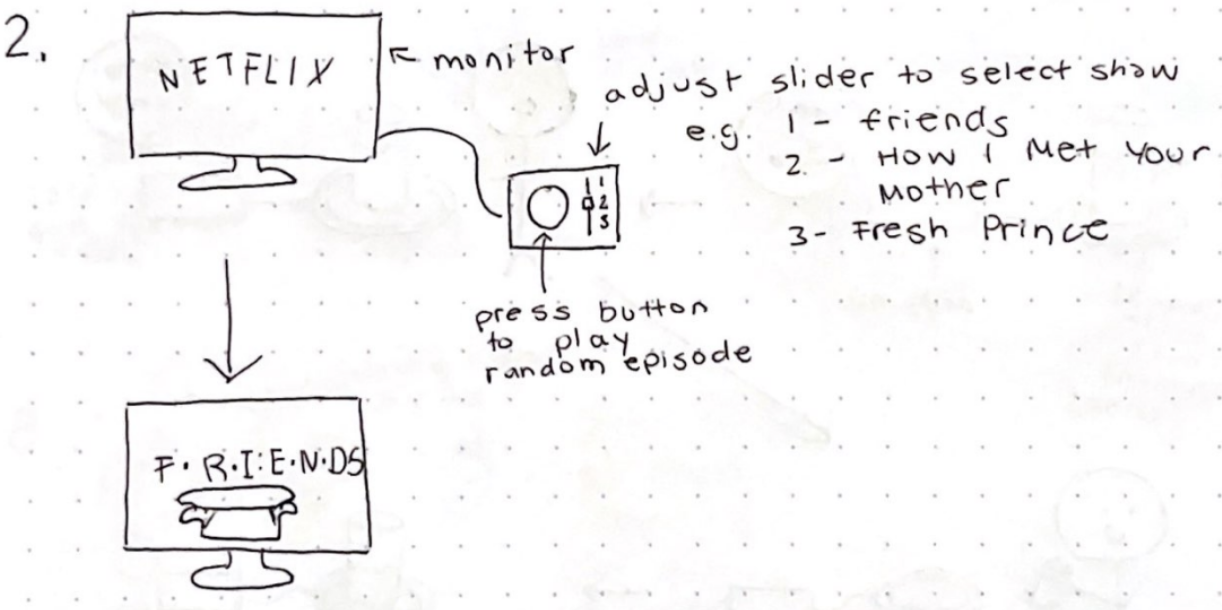 2.
NETFLIX
monitor
adjust slider to select show
e.g. 1 - friends
2. - How I Met Your
Mother
3 - Fresh Prince
1
2
3
press button
to play
random episode
F·R·I·E·N·DS